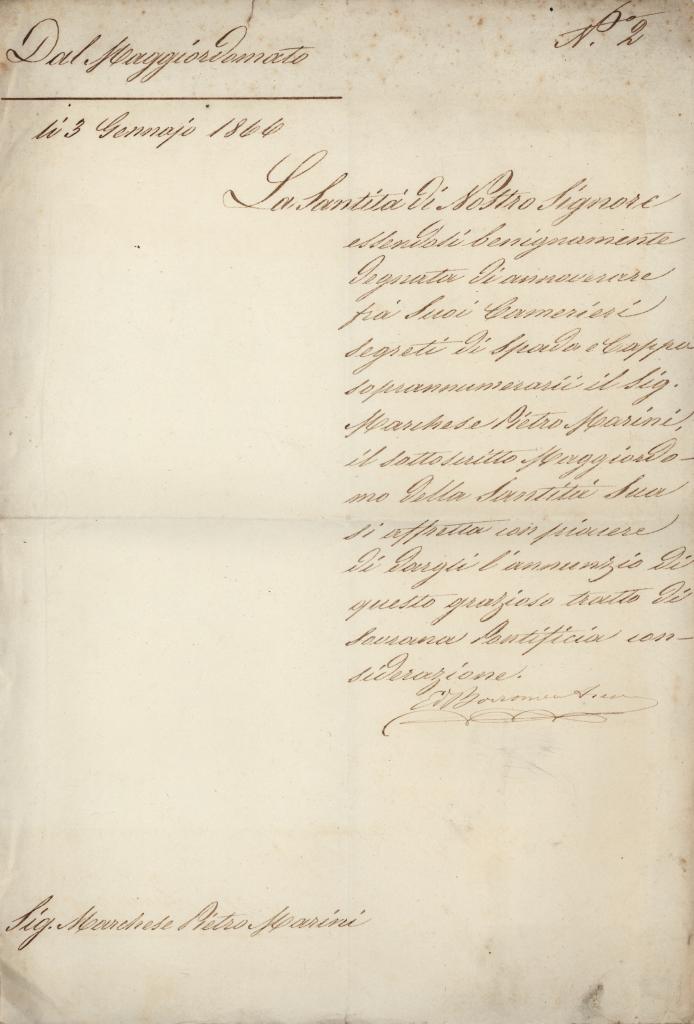 Dal Maggiordomato
N.º 2
li 3 Gennajo 1866
La Santità di Nostro Signore
essendosi benignamente
degnata di annoverare
frà Suoi Camerieri
segreti di Spada e Cappa
soprannumerarii il Sig.
Marchese Pietro Marini,
il sottoscritto Maggiordo-
mo della Santità Sua
si affretta con piacere
di dargli l'annunzio di
questo grazioso tratto di
Sovrana Pontificia con-
siderazione.
Ed Borromeo
Sig. Marchese Pietro Marini